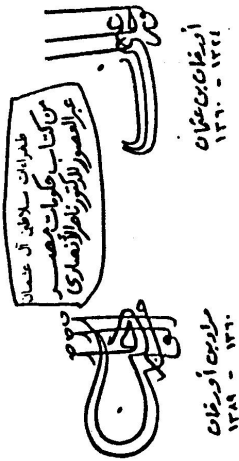 أورخان بن عثمان
١٣٢٤ - ١٣٦٠
طغراءات سلاطين آل عثمان
من كتاب حكومات مصر
عبر العصور للدكتور ناصر الأنصاري
مراد بن أورخان
١٣٦٠ - ١٣٨٩